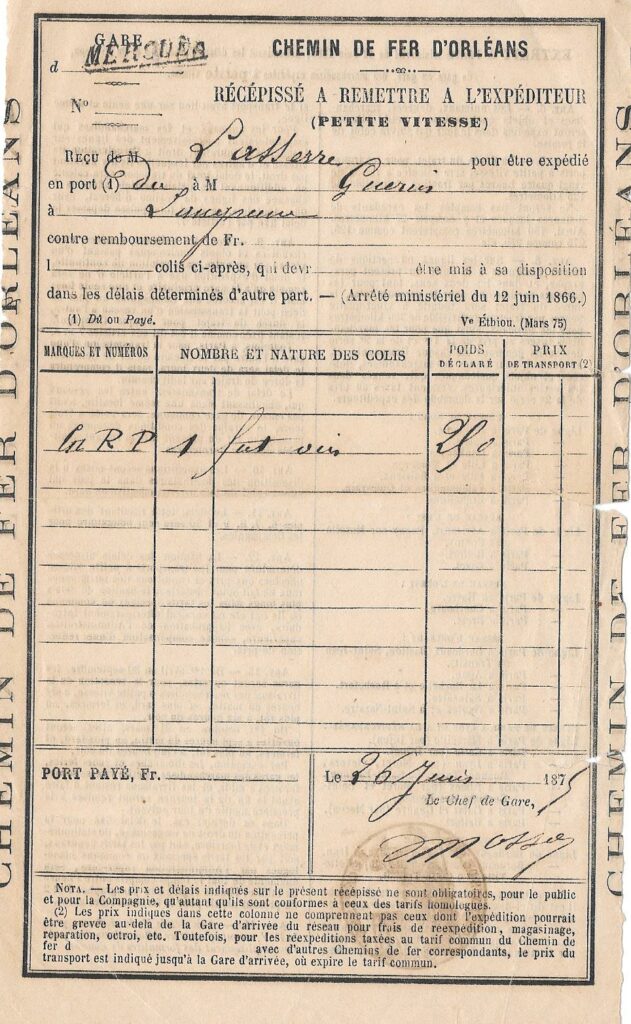 GARE
d MERCUÈS
CHEMIN DE FER D'ORLÉANS
N°
RÉCÉPISSÉ A REMETTRE A L'EXPÉDITEUR
(PETITE VITESSE)
REÇU DE M Lasserre pour être expédié
en port (1) Du à M Guerin
à
contre remboursement de Fr.
l colis ci-après, qui devr être mis à sa disposition
dans les délais déterminés d'autre part. — (Arrêté ministériel du 12 juin 1866.)
(1) Dû ou Payé. Ve Éthiou. (Mars 75)
MARQUES ET NUMÉROS NOMBRE ET NATURE DES COLIS POIDS DÉCLARÉ PRIX DE TRANSPORT (2)
R P 1 fut vin 250
PORT PAYÉ, Fr.
Le 26 Juin 1875
Le Chef de Gare,
NOTA. — Les prix et délais indiqués sur le présent récépissé ne sont obligatoires, pour le public
et pour la Compagnie, qu'autant qu'ils sont conformes à ceux des tarifs homologués.
(2) Les prix indiqués dans cette colonne ne comprennent pas ceux dont l'expédition pourrait
être grevée au-delà de la Gare d'arrivée du réseau pour frais de réexpédition, magasinage,
réparation, octroi, etc. Toutefois, pour les réexpéditions taxées au tarif commun du Chemin de
fer d avec d'autres Chemins de fer correspondants, le prix du
transport est indiqué jusqu'à la Gare d'arrivée, où expire le tarif commun.
CHEMIN DE FER D'ORLÉANS
CHEMIN DE FER D'ORLÉANS